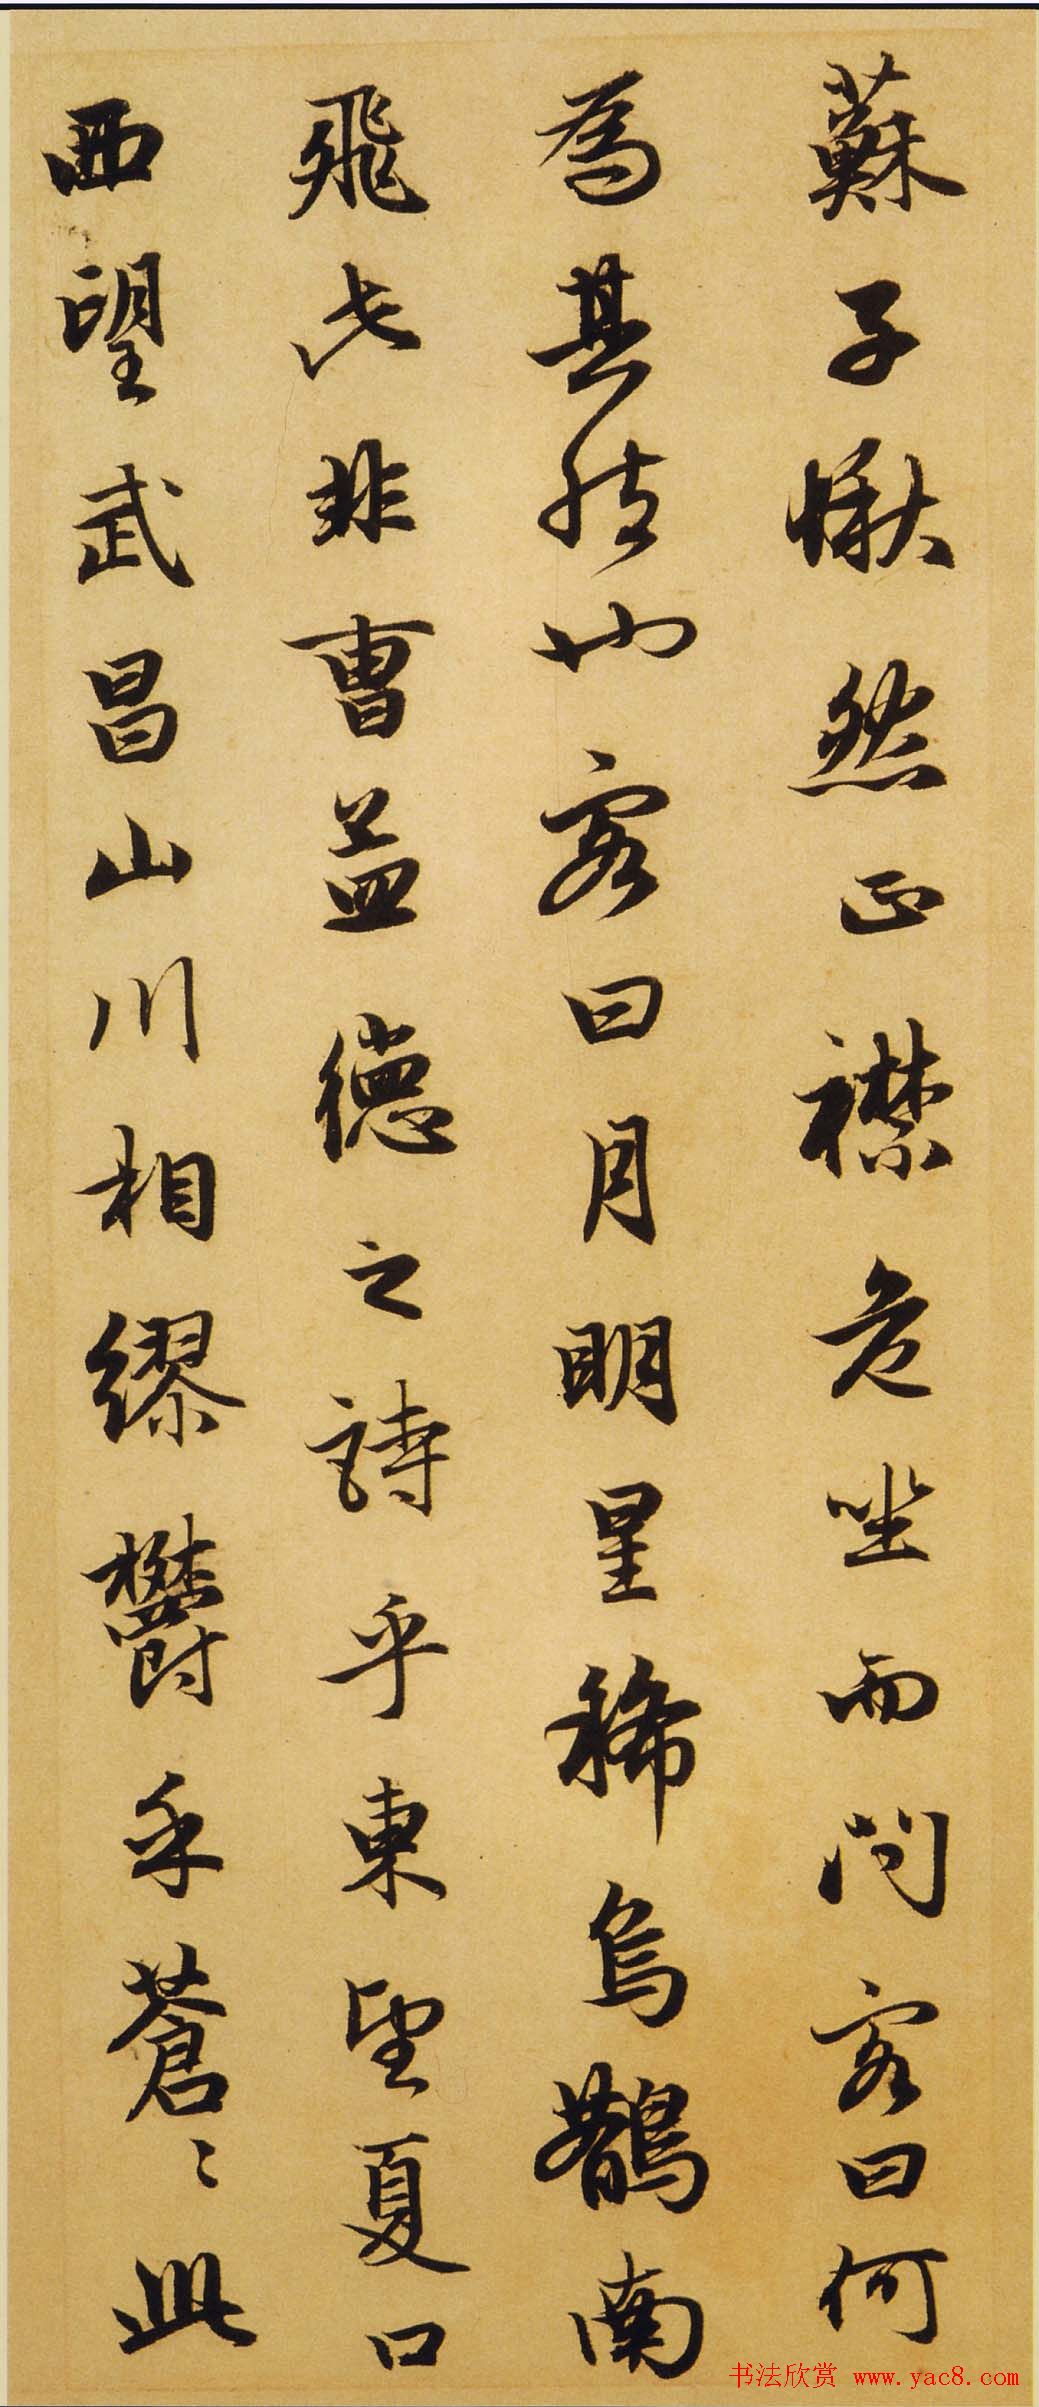 蘇子愀然正襟危坐而問客曰何
為其然也客曰月明星稀烏鵲南
飛此非曹孟德之詩乎東望夏口
西望武昌山川相繆鬱乎蒼〻此
书法欣赏 www.yac8.com